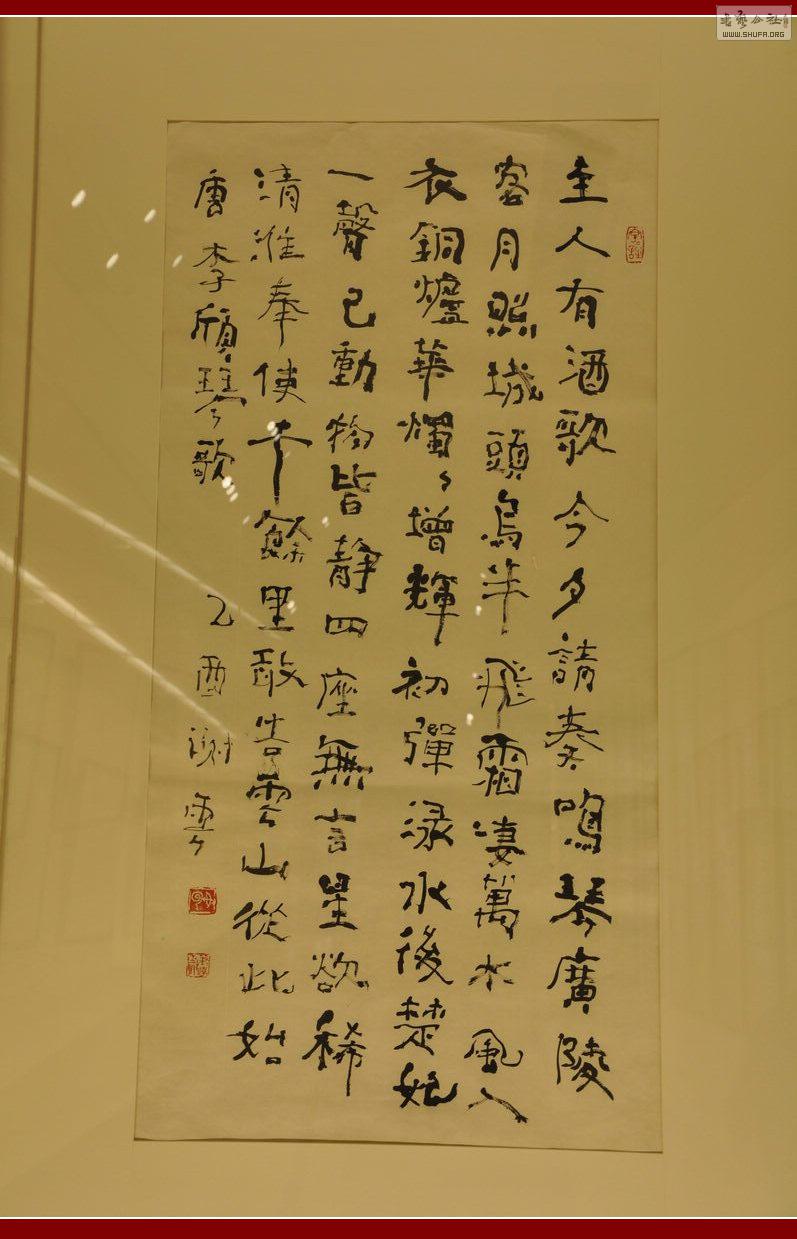 主人有酒歌今夕請奏鳴琴廣陵
客月照城頭烏半飛霜凄萬木風入
衣銅爐華燭々增輝初彈淥水後楚妃
一聲已動物皆靜四座無言星欲稀
清淮奉使千餘里敢告雲山從此始
唐李頎琴歌 乙酉謝雲
WWW.SHUFA.ORG